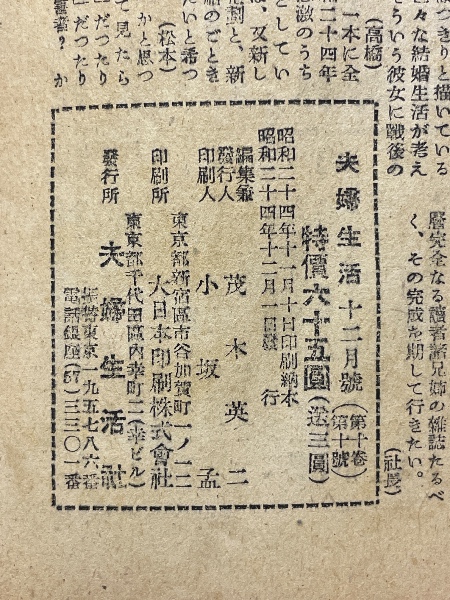 曆完全なる讀者諸兄姉の雜誌たるべ
く、その完成を期して行きたい。
(社長)
はつきりと描いている
々な結婚生活が考え
そういう彼女に戰後の
(高橋)
一本に全
二十四年
激のうち
としてい
は、又新し
(松本)
夫婦生活 十二月號 (第十卷第十號)
特價六十五圓(送三圓)
昭和二十四年十一月十日印刷納本
昭和二十四年十二月一日發行
編集兼發行人 茂木英二
印刷人 小坂孟
東京都新宿區市谷加賀町一ノ一二
印刷所 大日本印刷株式會社
東京都千代田區內幸町二(幸ビル)
發行所 夫婦生活社
振替東京一九五七八六番
電話銀座(57)三三〇一番